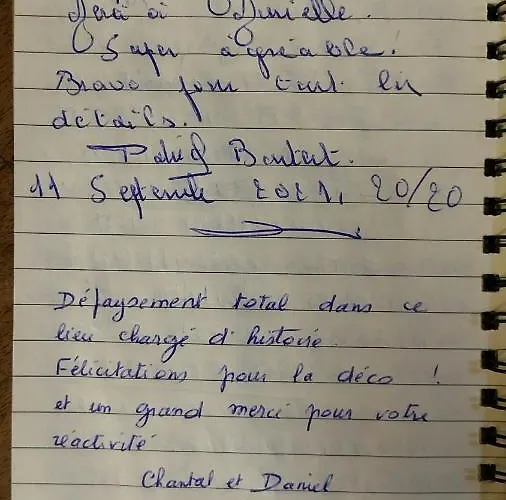 Super agréable.
Bravo pour tout les
détails.
11 Septembre 2021, 20/20
Dépaysement total dans ce
lieu chargé d'histoire
Félicitations pour la déco !
et un grand merci pour votre
réactivité
Chantal et Daniel